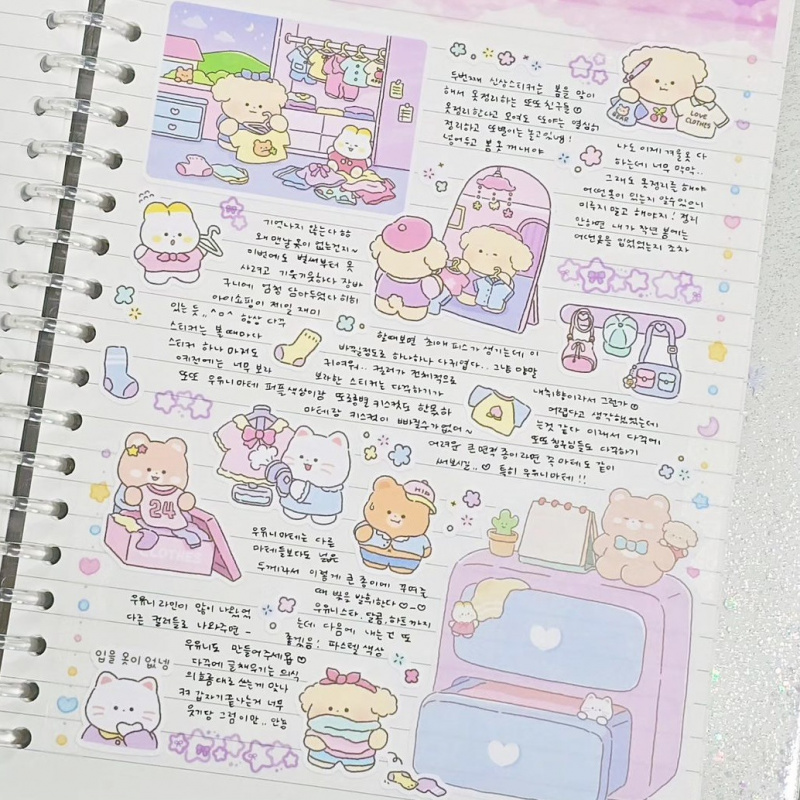 두번째 신상스티커는 봄을 맞이
해서 옷정리하는 또또친구들
옷정리한다고 모여도 또야는 열심히
정리하고 또뱅이는 놀고있넹!
넣어두고 봄옷 꺼내야
BEAR
LOVE
CLOTHES
나도 이제 겨울옷 다
하는데 너무 막막..
그래도 옷정리를 해야
어떤옷이 있는지 알수있으니
미루지 말고 해야지! 정리
안하면 내가 작년 봄에는
어떤옷을 입었었는지 조차
기억나지 않는다
왜 맨날 옷이 없는건지~
이번에도 벌써부터 옷
사려고 기웃기웃하다 장바
구니에 엄청 담아두었다 히히
아이쇼핑이 제일 재미
있는 듯.. ^o^ 항상 다꾸
스티커는 볼때마다
스티커 하나 마저도
0키전에는 너무 보라
또또 우유니마테 퍼플색상이랑
할때보면 최애 피스가 생기는데 이
바뀔정도로 하나하나 다귀엽다.. 그냥 말랑
귀여워.. 컬러가 전체적으로
보라한 스티커는 다꾸하기가
또롱별 키스컷도 함께하
마테랑 키스컷이 빠질수가없어~
내취향이라서 그런가
어렵다고 생각했었는데
는것 같다 이래서 다꾸에
또또친구들도 다꾸하기
어려운 큰 면적 종이라면 꼭 마테도 같이
써보시길.. ♡ 특히 우유니마테!!
24
CLOTHES
HIP
우유니마테는 다른
마테들보다도 넓은
두께라서 이렇게 큰 종이에 꾸며줄
때 빛을 발휘한다 ♡-♡
우유니 라인이 많이 나왔었
다른 컬러들로 나와주면 -
우유니스타, 달콤, 하트까지
는데 다음에 내는건 또
좋겠음! 파스텔 색상
우유니도 만들어주세요 ♡
다꾸에 글채우기는 의식
의흐름대로 쓰는게 맞나
ㅋㅋ 갑자기 끝나는거 너무
웃기당 그럼 이만.. 안농
입을 옷이 없넹